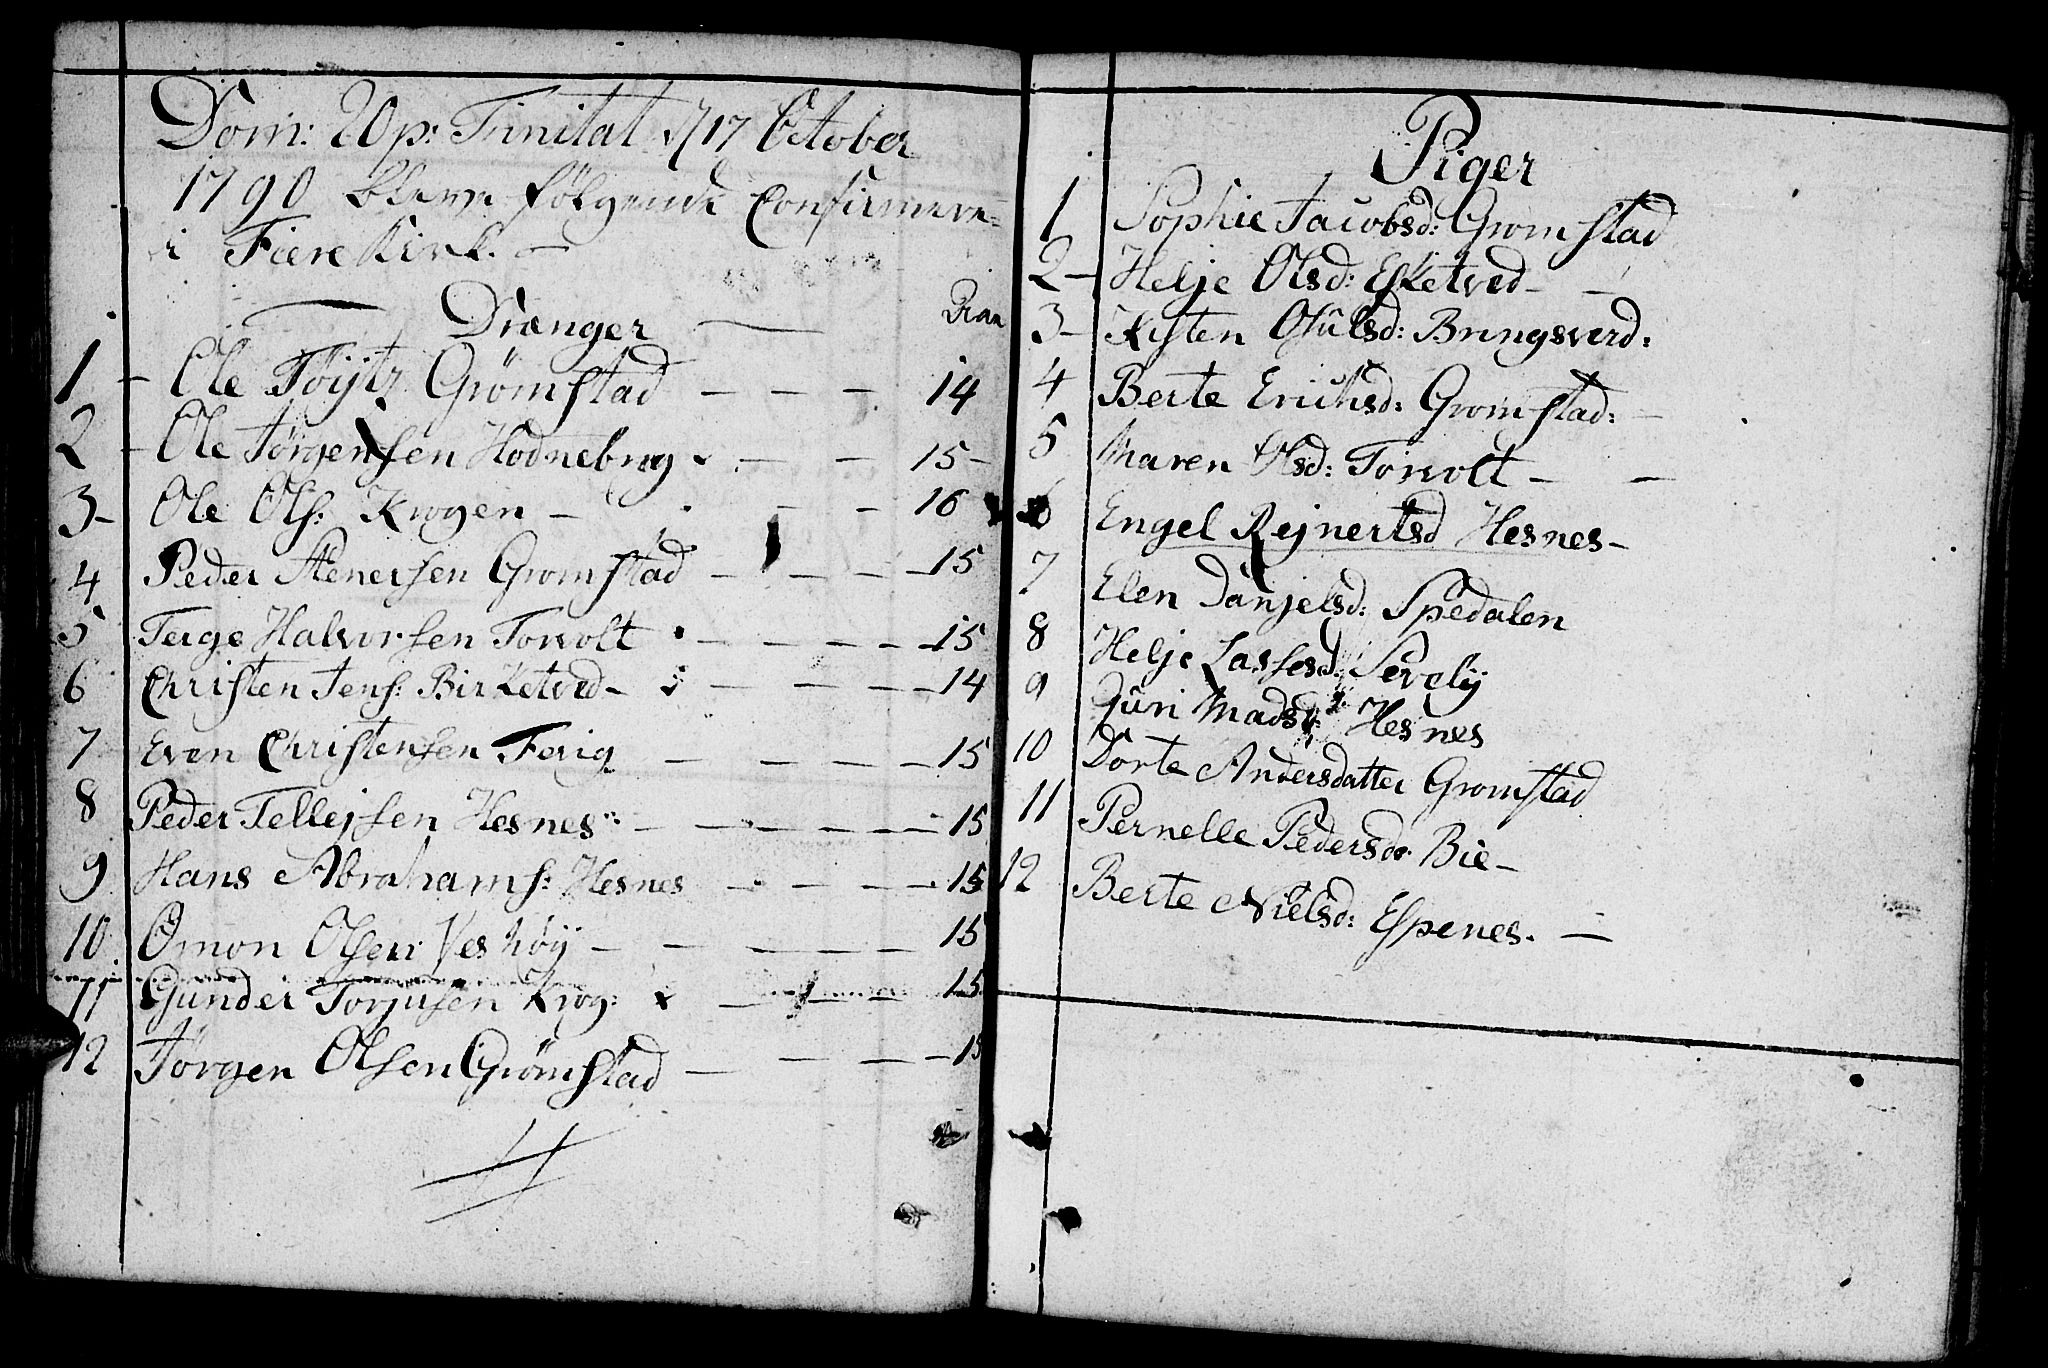 Dom: 20 p: Tinitat 17 October
1790 bleve følgende Confirmere-
i Fiere Kirk.
Drænger
1 - Ole Tøijtz Grømstad - - - 14
2 - Ole Jørgensen Hodnebrog - - 15 -
3 - Ole Ols: Krogen - - - 16
4 Peder Stenersen Gromstad - - - - 15
5 Terge Halvorsen Torvolt - - - - 15
6 Christen Jens: Birketved - - - - 14
7 Even Christensen Ferig - - - - 15
8 Peder Tellejsen Hesnes - - - - - 15
9 Hans Abrahams: Hesnes - - - - 15
10 Omon Olsen Veshøij - - - - 15
11 Gunder Torjusen Krog: - - - 15
12 Jørgen Olsen Grømstad - - - - 15
Piger
1 Sophie Jacobsd: Gromstad
2 - Helje Olsd: Esketved - -
3 - Kisten Osulsd: Bringsverd:
4 Berte Erichsd: Gromstad: -
5 Maren Olsd: Torvolt - -
6 Engel Rejnertsd Hesnes -
7 Elen Danjelsd: Spedalen
8 Helje Lassesd: Sevelij
9 Guri Madsd: Hesnes
10 Dorte Andersdatter Gromstad
11 Pernelle Pedersd: Bie -
12 Berte Nielsd: Espenes. -